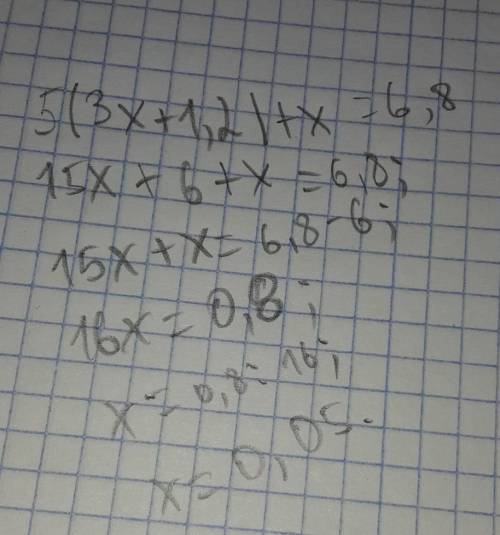 5(3x+1,2)+x=6,8
15x+6+x=6,8;
15x+x=6,8-6;
16x=0,8;
x=0,8:16;
x=0,05.